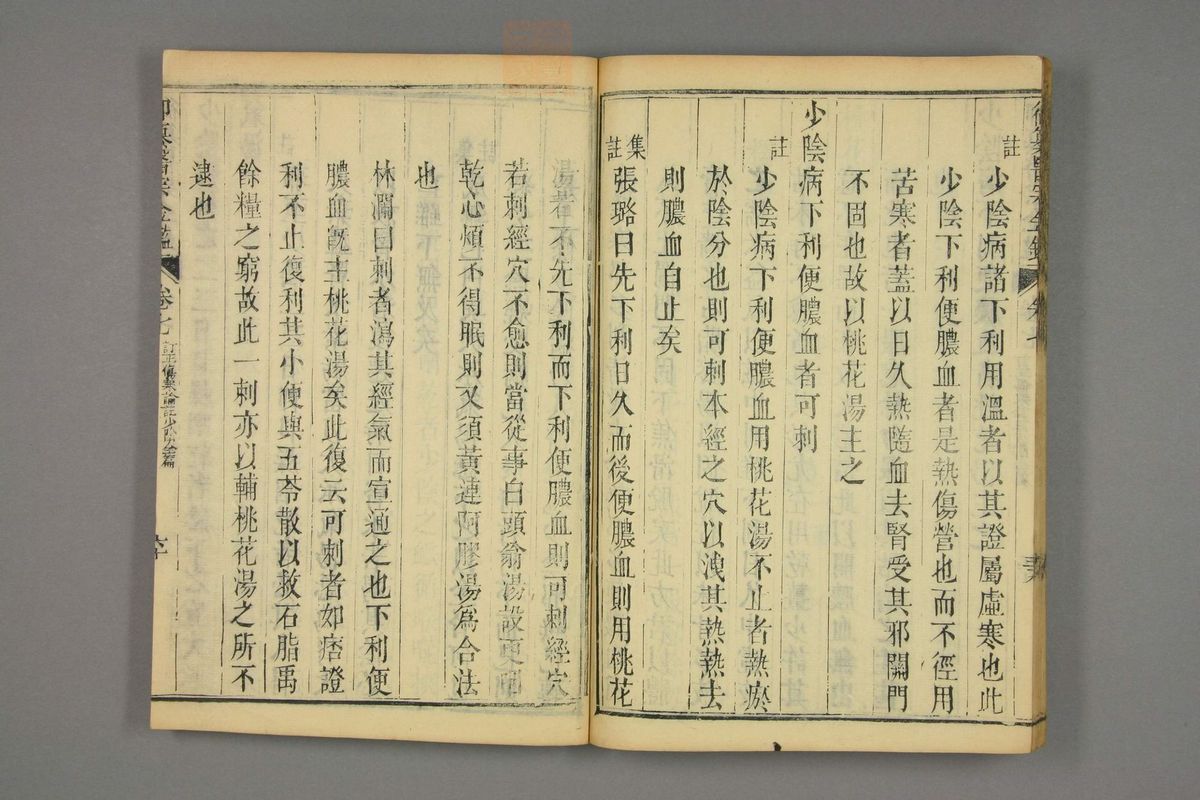 註
少陰病諸下利用溫者以其證屬虛寒也此
少陰下利便膿血者是熱傷營也而不徑用
苦寒者蓋以日久熱隨血去腎受其邪關門
不固也故以桃花湯主之
少陰病下利便膿血者可刺
註
少陰病下利便膿血用桃花湯不止者熱瘀
於陰分也則可刺本經之穴以洩其熱熱去
則膿血自止矣
集註
張璐曰先下利日久而後便膿血則用桃花
湯若不先下利而下利便膿血則可刺經穴
若刺經穴不愈則當從事白頭翁湯設更
乾心煩不得眠則又須黃連阿膠湯爲合法
也
林瀾曰刺者瀉其經氣而宣通之也下利便
膿血旣主桃花湯矣此復云可刺者如痞證
利不止復利其小便與五苓散以救石脂禹
餘糧之窮故此一刺亦以輔桃花湯之所不
逮也
卷七